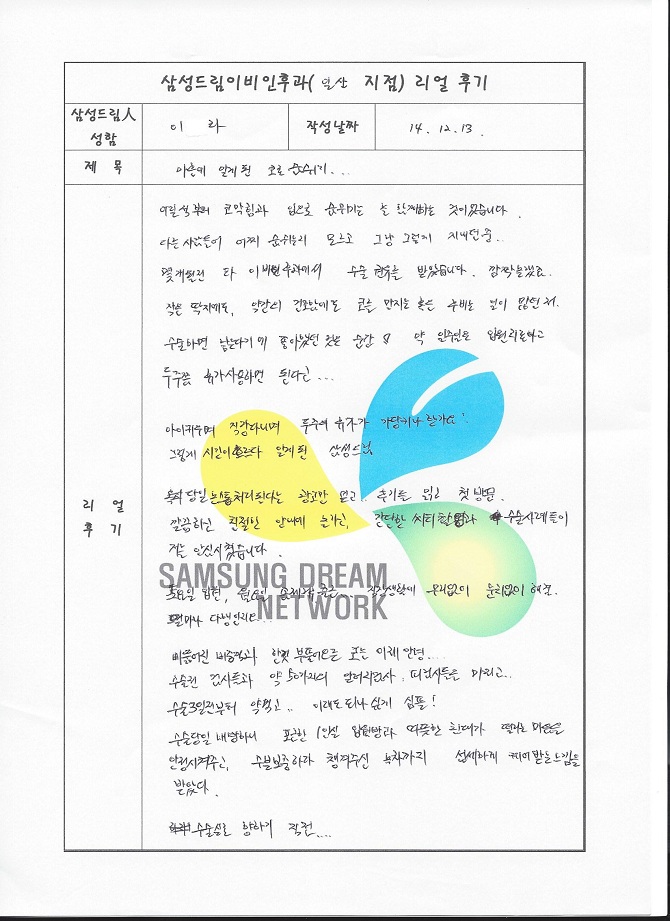 삼성드림이비인후과( 일산 지점) 리얼 후기
삼성드림人 성함
이 라
작성날짜
14. 12. 13.
제 목
마흔에 알게 된 코로 숨쉬기...
리 얼 후 기
어릴적부터 코막힘과 입으로 숨쉬기는 늘 함께하는 것이었습니다.
다른 사람들이 어찌 숨쉬는지 모르고 그냥 그렇게 지내던중..
몇개월전 타 이비인후과에서 수술 권유를 받았습니다. 깜짝놀랐죠.
작은 딱지에도, 약간의 건조함에도 코를 만지는 혹은 후비는 일이 많던 저.
수술하면 낫는다기에 좋아했던 것은 순간 & 약 일주일은 입원치료하고
두주쯤 휴가사용하면 된다고...
아이키우며 직장다니며 두주의 휴가가 가당키나 한가요!
그렇게 시간이 흐르다 알게된 삼성드림
당일 논스톱처리된다는 광고만 믿고.. 후기들 읽고 첫 방문.
깔끔하고 친절한 안내에 놀라고, 간단한 씨티촬영과 수술사례들이
저를 안심시켰습니다.
SAMSUNG DREAM
NETWORK
토요일 입원, 월요일 출근... 직장생활에 무리없이 문제없이 해결.
얼마나 다행인지...
삐뚤어진 비중격과 한껏 부풀어오른 코는 이제 안녕....
수술전 검사들과 약 50가지의 알러지검사, 피검사등은 마치고..
수술3일전부터 약먹고.. 이래도 되나 싶게 심플!
수술당일 내원하니 포근한 1인실 입원방과 따뜻한 환대가 떨리는 마음을
안정시켜주고, 수분보충하라 챙겨주신 녹차까지 섬세하게 케어받는 느낌을
받았다.
수술실로 향하기 직전....